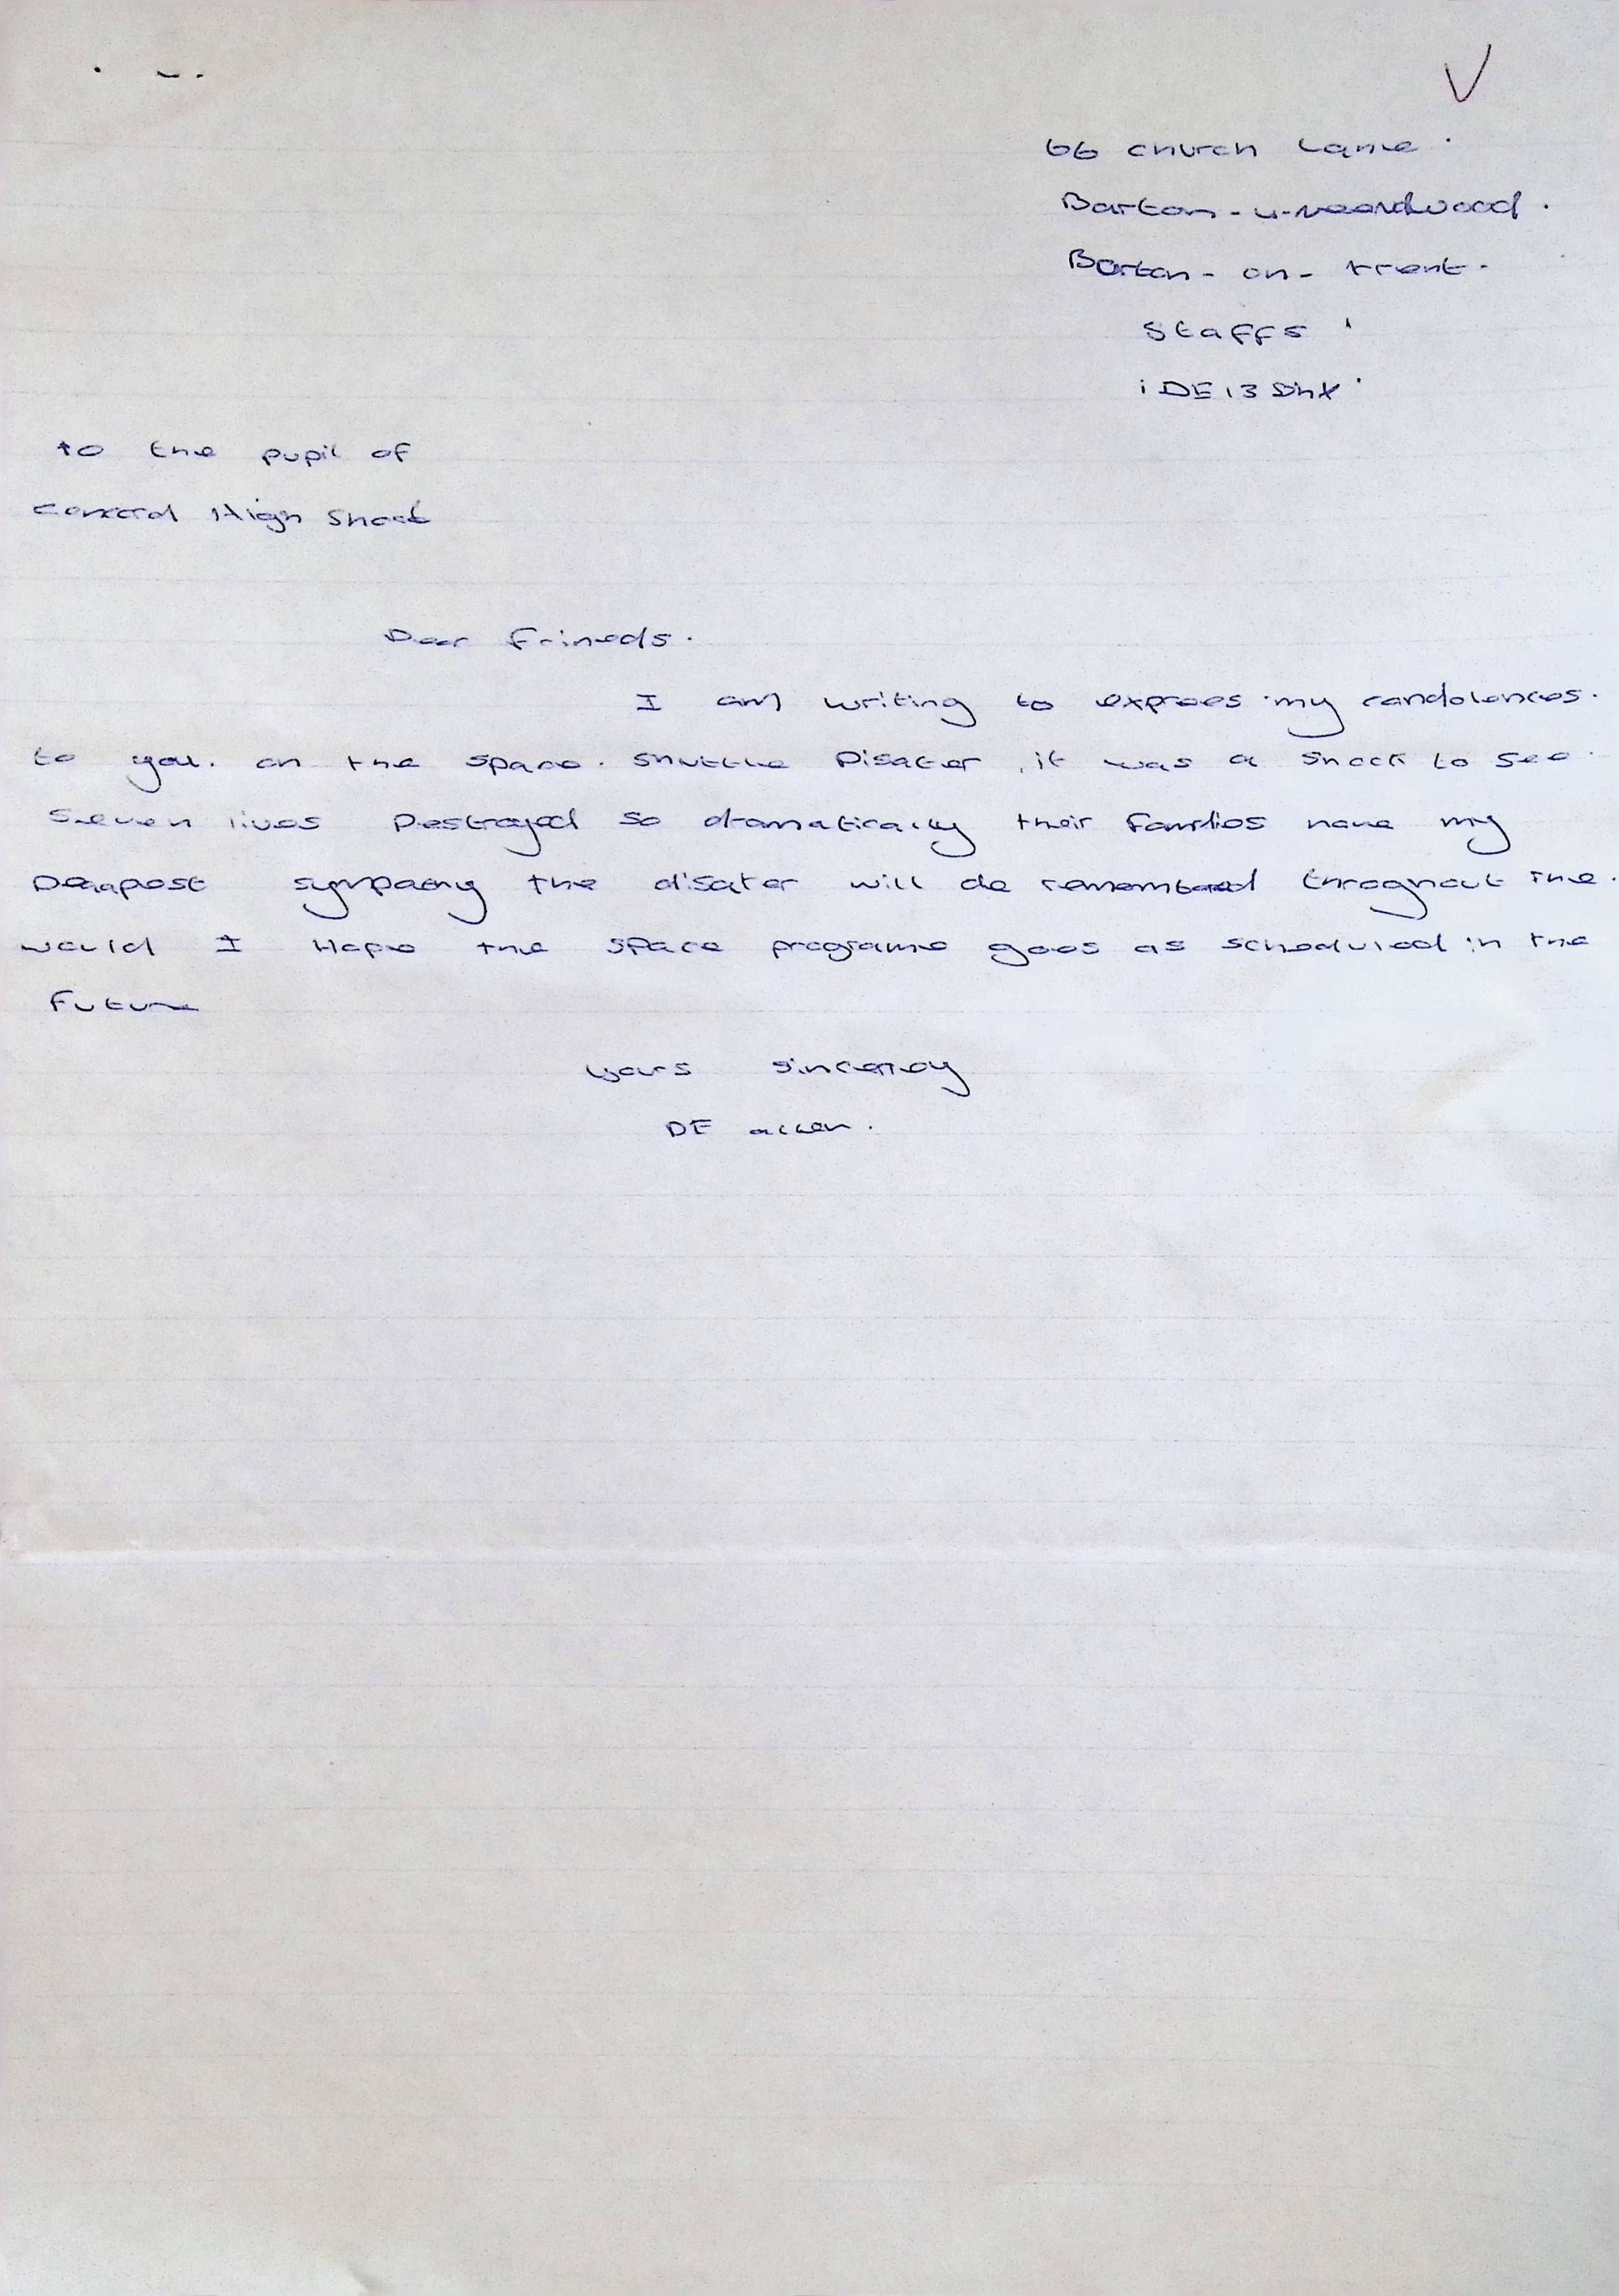 66 church Lane.
Barton-u-neardwood.
Borton-on-trent.
Staffs
DE13 8hx
to the pupil of
concord High Shool
Dear Frineds.
I am writing to exprees my condolences.
to you. on the space. shuttle Disater, it was a shock to see
seven lives Destroyed so dramatically their families have my
Deapest sympathy the disater will de remembered throghout the.
would I Hope the space programe goes as scheduled in the
Future
yours sincerey
DE allen.